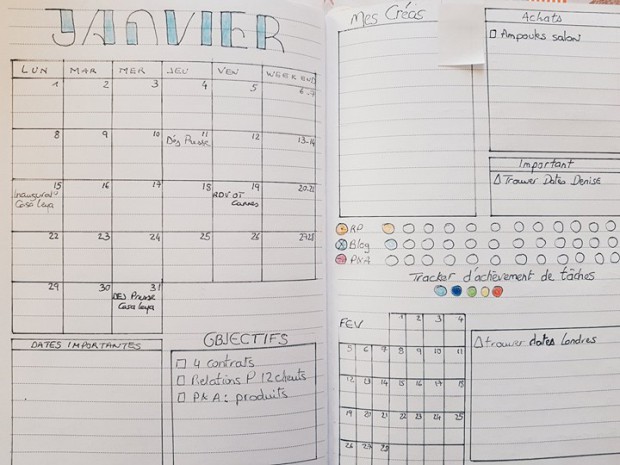 JANVIER
LUN MAR MER JEU VEN WEEK END
1 2 3 4 5 6-7
8 9 10 11 12 13-14
Déj Presse
15 16 17 18 19 20-21
Casa Leya
RDV OT
Cannes
22 23 24 25 26 27-28
29 30 31
DEJ Presse
Casa Leya
DATES IMPORTANTES
OBJECTIFS
4 contrats
Relations P 12 clients
P&A : produits
Mes Créas
Achats
Ampoules salon
Important
Trouver Dates Denise
RP
Blog
P&A
Tracker d'achèvement de tâches
FEV
1 2 3 4
5 6 7 8 9 10 11
12 13 14 15 16 17 18
19 20 21 22 23 24 25
26 27 28
trouver dates Londres